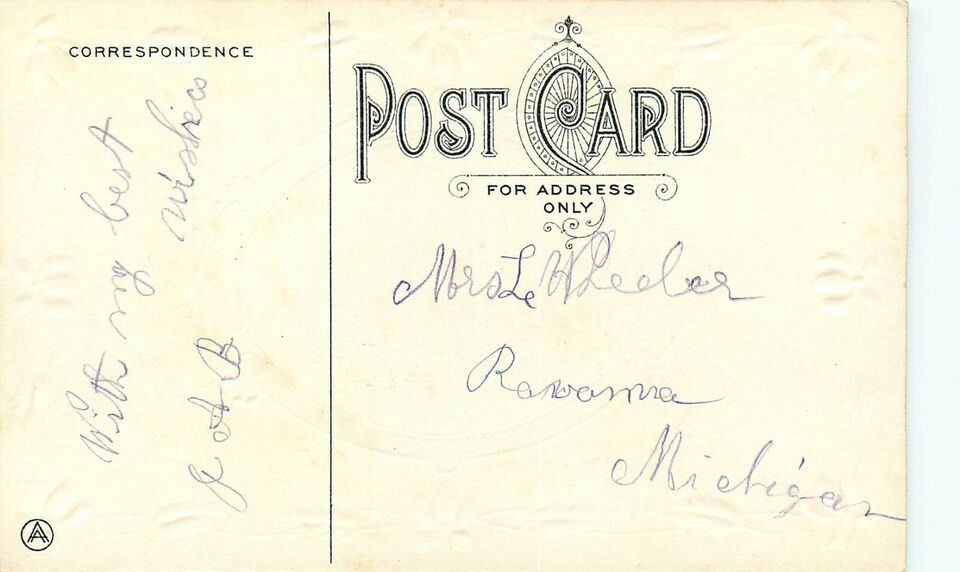 CORRESPONDENCE
With my best
wishes
J A B
POST CARD
FOR ADDRESS
ONLY
Mrs L Wheeler
Ravanna
Michigan
A